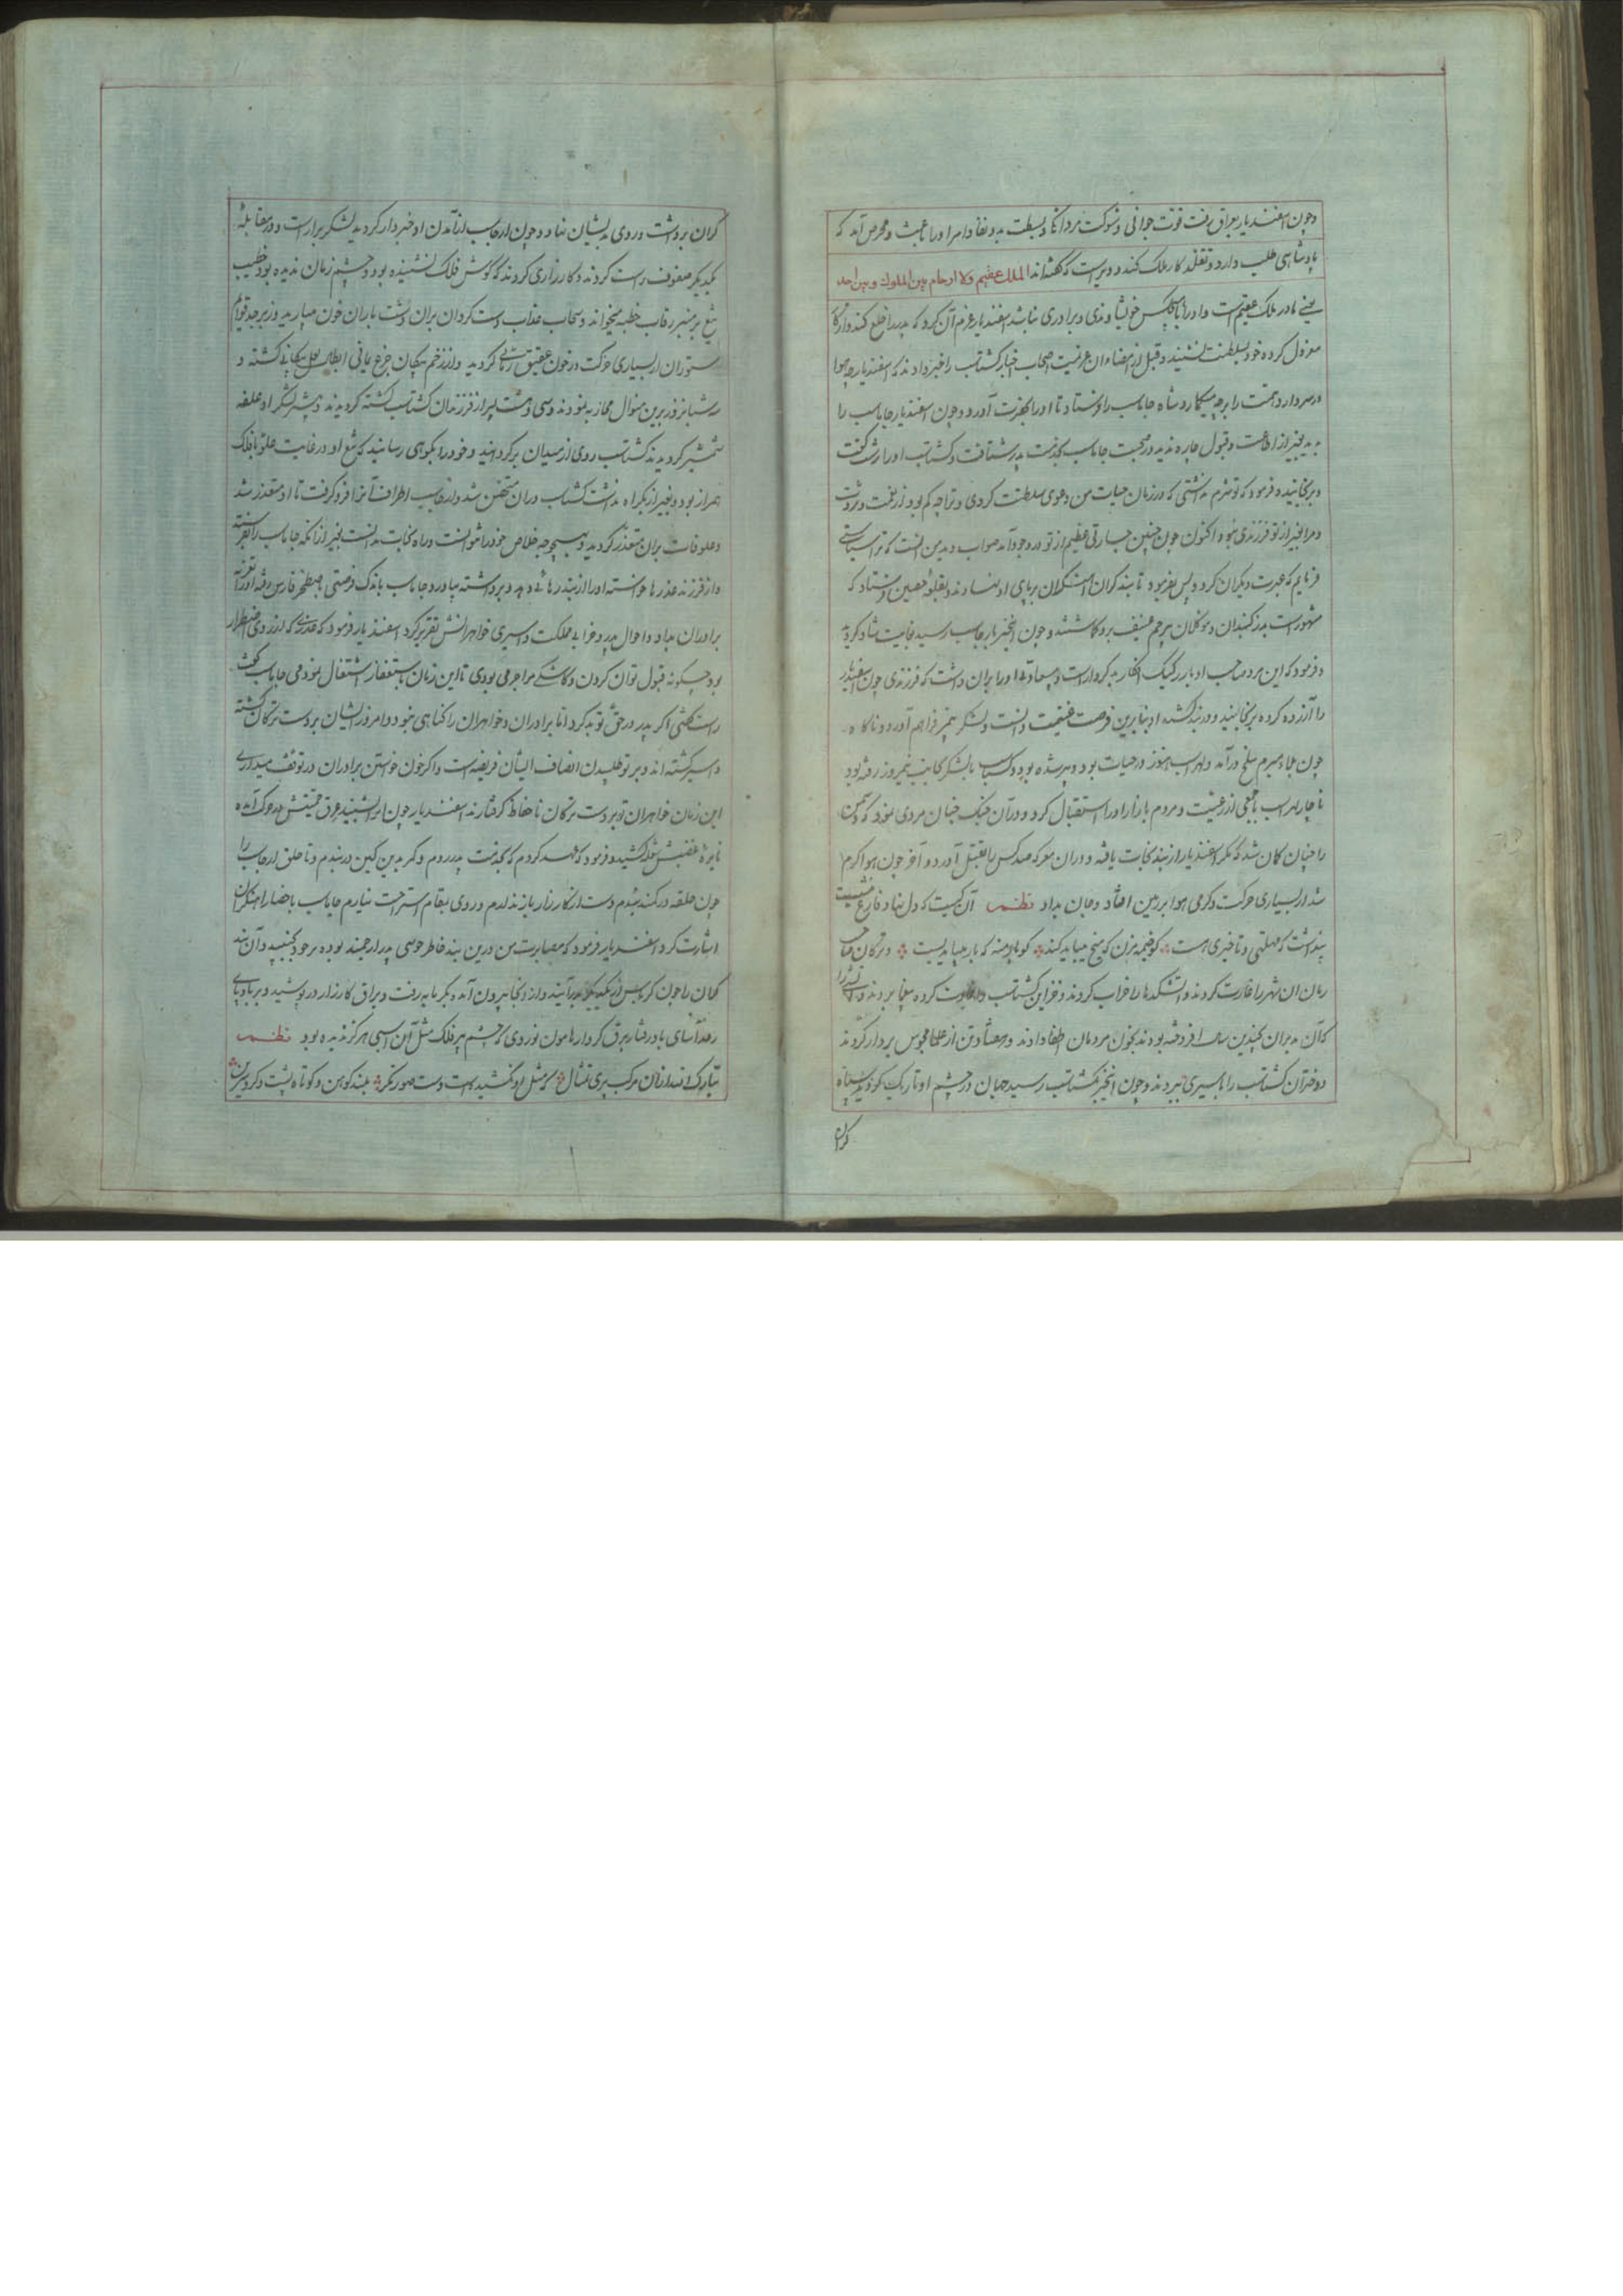 وچون اسفندیار بعراق رفت قوت جوانی و شوکت مردانگی و بسطت ید و نفاذ امر او را باعث و محرض آمد که
پادشاهی طلب دارد و تقلد کار ملک کند و دیرست که گفته‌اند الملك عقیم ولا ارحام بین الملوك و بین احد
یعنی مادر ملک عقیمست و او را با هیچکس خویشاوندی و برادری نباشد اسفندیار عزم آن کرد که پدر را خلع کند و از کار
معزول کرده خود بسلطنت نشیند و قبل از امضاء آن عزیمت اصحاب اخبار گشتاسب را خبر دادند که اسفندیار چه هوا
در سر دارد و همت را بر چه میگمارد شاه جاماسب را فرستاد تا او را بحضرت آورد و چون اسفندیار جاماسب را
بدید بغیر از اطاعت و قبول چاره ندید در صحبت جاماسب بخدمت پدر شتافت و گشتاسب او را درشت گفت
و برنجانید و فرمود که تو شرم نداشتی که در زمان حیات من دعوی سلطنت کردی و ترا چه کم بود از نعمت و ثروت
و مرا بغیر از تو فرزندی نبود اکنون چون چنین جسارتی عظیم از تو در وجود آمد صواب دید من آنست که ترا سیاستی
فرمایم که عبرت دیگران گردد پس بفرمود تا بند گران آهنگران بر پای او نهادند و بقلعه معین فرستاد که
مشهورست بدز گنبدان و موکلان بی رحم عنیف برو گماشتند و چون این خبر بارجاسب رسید بغایت شاد گردید
و فرمود که این مرد صاحب ادبار رکیک افکار بد کردارست و چه سعادت او را بران داشت که فرزندی چون اسفندیار
را آزرده کرده برنجانید و در بند کشد او بنابرین فرصت غنیمت دانست و لشکر بیمر فراهم آورد و ناگاه
چون بلاء مبرم ببلخ درآمد و لهراسب هنوز در حیات بود و پیر شده بود و گشتاسب با لشکر بجانب نیمروز رفته بود
ناچار لهراسب با جمعی از رعیت و مردم بازار او را استقبال کرد و در آن جنگ چنان مردی نمود که دشمن
را چنان گمان شد که مگر اسفندیار از بند نجات یافته و دران معرکه صد کس را بقتل آورد و آخر چون هوا گرم
شد از بسیاری حرکت و گرمی هوا بر زمین افتاد و جان بداد نظم آن کیست که دل نهاد و فارغ بنشست
پنداشت که مهلتی و تاخیری هست گو خیمه مزن که میخ میباید کند گو بار منه که بار میباید بست و ترکان
زمان آن شهر را غارت کردند و آتشکده‌ها را خراب کردند و خزاین گشتاسب را غارت کرده بیغما بردند و آتشی را
که آن پدران چندین سال افروخته بودند بخون مردمان اطفا دادند و هفتاد تن از علما مجوس بر دار کردند
دو دختران گشتاسب را باسیری ببردند و چون این خبر بگشتاسب رسید جهان در چشم او تاریک گردید سپاه
گران
گران برداشت و روی بدیشان نهاد و چون ارجاسب از آمدن او خبردار گردید لشکر براراست و در مقابله
یکدیگر صفوف راست کردند و کارزاری کردند که گوش فلک نشنیده بود و چشم زمان ندیده بود خطیب
تیغ بر منبر رقاب خطبه میخواند و سحاب عذاب دست گردان بران دشت باران خون میبارید و زبرجد قوایم
ستوران از بسیاری حرکت در خون عقیق رنگ گردید و از زخم پیکان جزع یمانی ابطال لعل پیکانی گشته و
سه شبانروز برین منوال محاربه نمودند و سی و هشت پسر از فرزندان گشتاسب کشته گردیدند و بیشتر لشکر او علف
شمشیر گردیدند گشتاسب روی از میدان برگردانید و خود را بکوهی رسانید که تیغ او در غایت علو با فلک
همراز بود و بغیر از یکراه نداشت گشتاسب دران متحصن شد و ارجاسب اطراف آنرا فرو گرفت تا او متعذر شد
و علوفات بران متعذر گردید و بهیچوجه خلاص خود را نتوانست و راه نجات ندانست بغیر از آنکه جاماسب را بفرستد
و از فرزند عذرها خواسته او را از بند رهائی دهد و برداشته بیاورد جاماسب باندک فرصتی باصطخر فارس رفته او را تعزیه
برادران بداد و احوال پدر و خرابی مملکت و اسیری خواهرانش تقریر کرد اسفندیار فرمود که عذری که از روی اضطرار
بود چگونه قبول توان کردن و کاشکی مرا جرمی بودی تا این زمان باستغفار اشتغال نمودمی جاماسب گفت
راست گفتی اگر پدر در حق تو بد کرد اما برادران و خواهران را گناهی نبود و امروز ایشان بر دست ترکان کشته
و اسیر گشته‌اند و بر تو طلبیدن انصاف ایشان فریضه است و اگر خون خواستن برادران در توقف میداری
این زمان خواهران تو بر دست ترکان ناحفاظ گرفتارند اسفندیار چون این بشنید عرق حمیتش در حرکت آمده
نایره غضبش شعله کشید و فرمود که عهد کردم که بخدمت پدر روم و کمر بدین کین در بندم و تا حلق ارجاسب را
چون حلقه در کمند نبندم دست از کارزار باز ندارم و روی بمقام استراحت نیارم جاماسب باحضار آهنگران
اشارت کرد اسفندیار فرمود که مصابرت من درین بند خاطر جویی پدر ارجمند بوده بر خود بجنبید و آن بند
گران را چون کرباس از یکدیگر بدرانید و از آنجا بیرون آمد دیگر مایه رفت و یراق کارزار در پوشید و بر بادپای
رعدآسای بادرفتار برق کردار هامون نوردی که چشم پیر فلک مثل آن اسبی هرگز ندیده بود نظم
تبارک الله ازان مرکب پری تمثال که مثل او نکشیدست دست صورتگر بلند کوهن و کوتاه پشت و گرد سرین